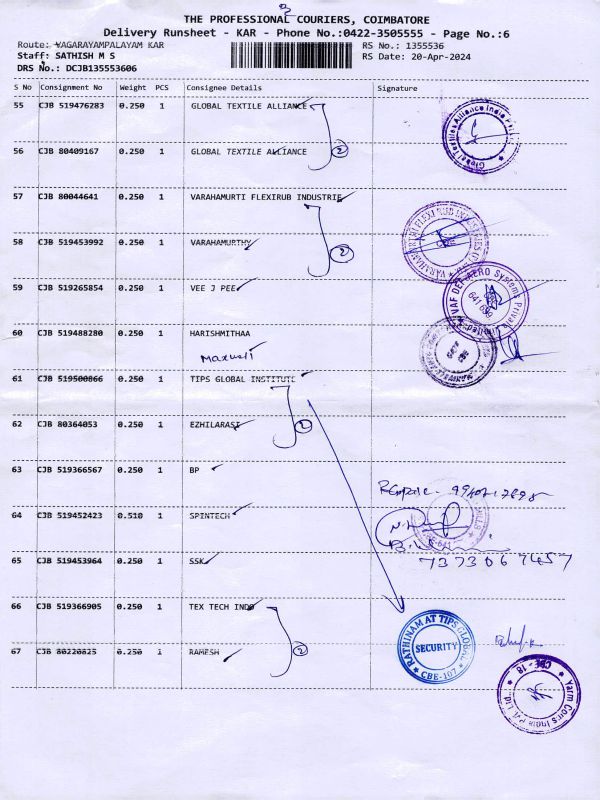 THE PROFESSIONAL COURIERS, COIMBATORE
Delivery Runsheet - KAR - Phone No.:0422-3505555 - Page No.:6
Route: VAGARAYAMPALAYAM KAR RS No.: 1355536
Staff: SATHISH M S RS Date: 20-Apr-2024
DRS No.: DCJB135553606
S No Consignment No Weight PCS Consignee Details Signature
55 CJB 519476283 0.250 1 GLOBAL TEXTILE ALLIANCE
56 CJB 80409167 0.250 1 GLOBAL TEXTILE ALLIANCE 2
57 CJB 80044641 0.250 1 VARAHAMURTI FLEXIRUB INDUSTRIE
58 CJB 519453992 0.250 1 VARAHAMURTHY 2
59 CJB 519265854 0.250 1 VEE J PEE
60 CJB 519488280 0.250 1 HARISHMITHAA
61 CJB 519500866 0.250 1 TIPS GLOBAL INSTITUTE
62 CJB 80364053 0.250 1 EZHILARASI 2
63 CJB 519366567 0.250 1 BP
64 CJB 519452423 0.510 1 SPINTECH
65 CJB 519453964 0.250 1 SSK
7373067457
66 CJB 519366905 0.250 1 TEX TECH INDO
RATHINAM AT TIPS GLOBAL
SECURITY
CBE-107
67 CJB 80220825 0.250 1 RAMESH 2
CBE-18